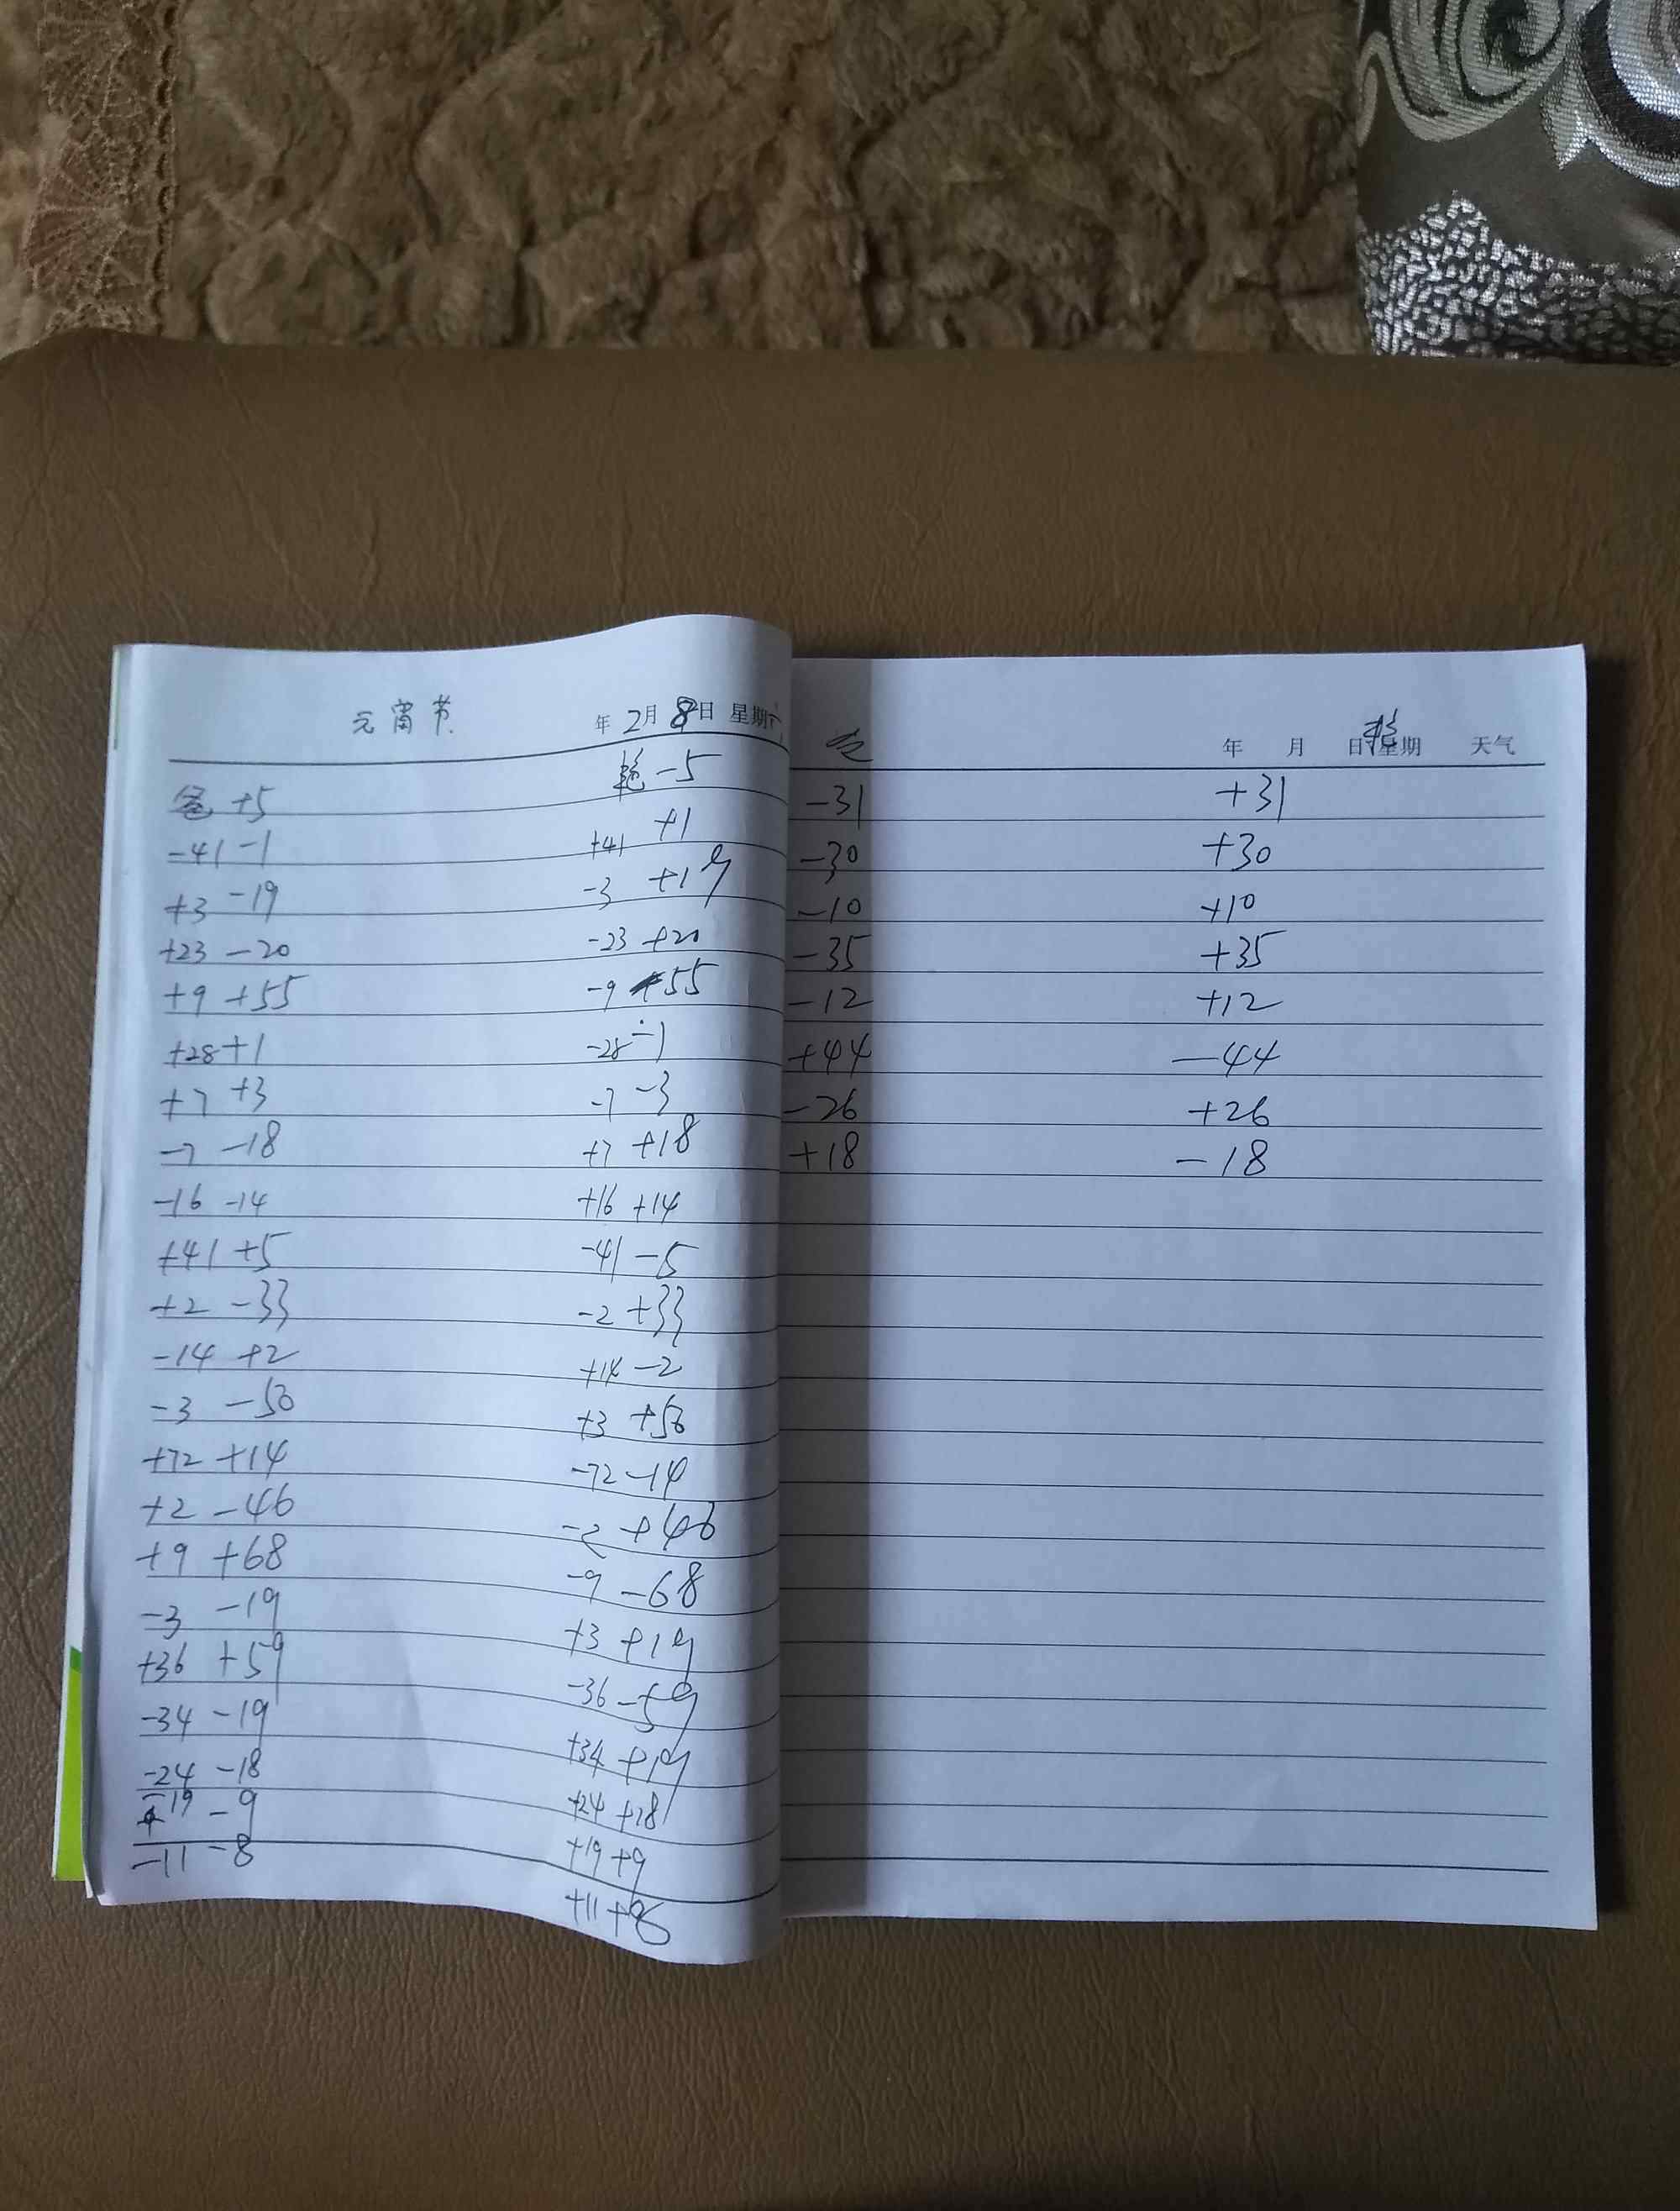 元宵节 年 2月 8日 星期
爸 +5 艳 -5
-41 -1 +41 +1
+3 -19 -3 +19
+23 -20 -23 +20
+9 +55 -9 -55
+28 +1 -28 -1
+7 +3 -7 -3
-7 -18 +7 +18
-16 -14 +16 +14
+41 +5 -41 -5
+2 -33 -2 +33
-14 +2 +14 -2
-3 -50 +3 +50
+72 +14 -72 -14
+2 -46 -2 +46
+9 +68 -9 -68
-3 -19 +3 +19
+36 +59 -36 -59
-34 -19 +34 +19
-24 -18 +24 +18
-19 -9 +19 +9
-11 -8 +11 +8
年 月 日 星期 天气
-31 +31
-30 +30
-10 +10
-35 +35
-12 +12
+44 -44
-26 +26
+18 -18